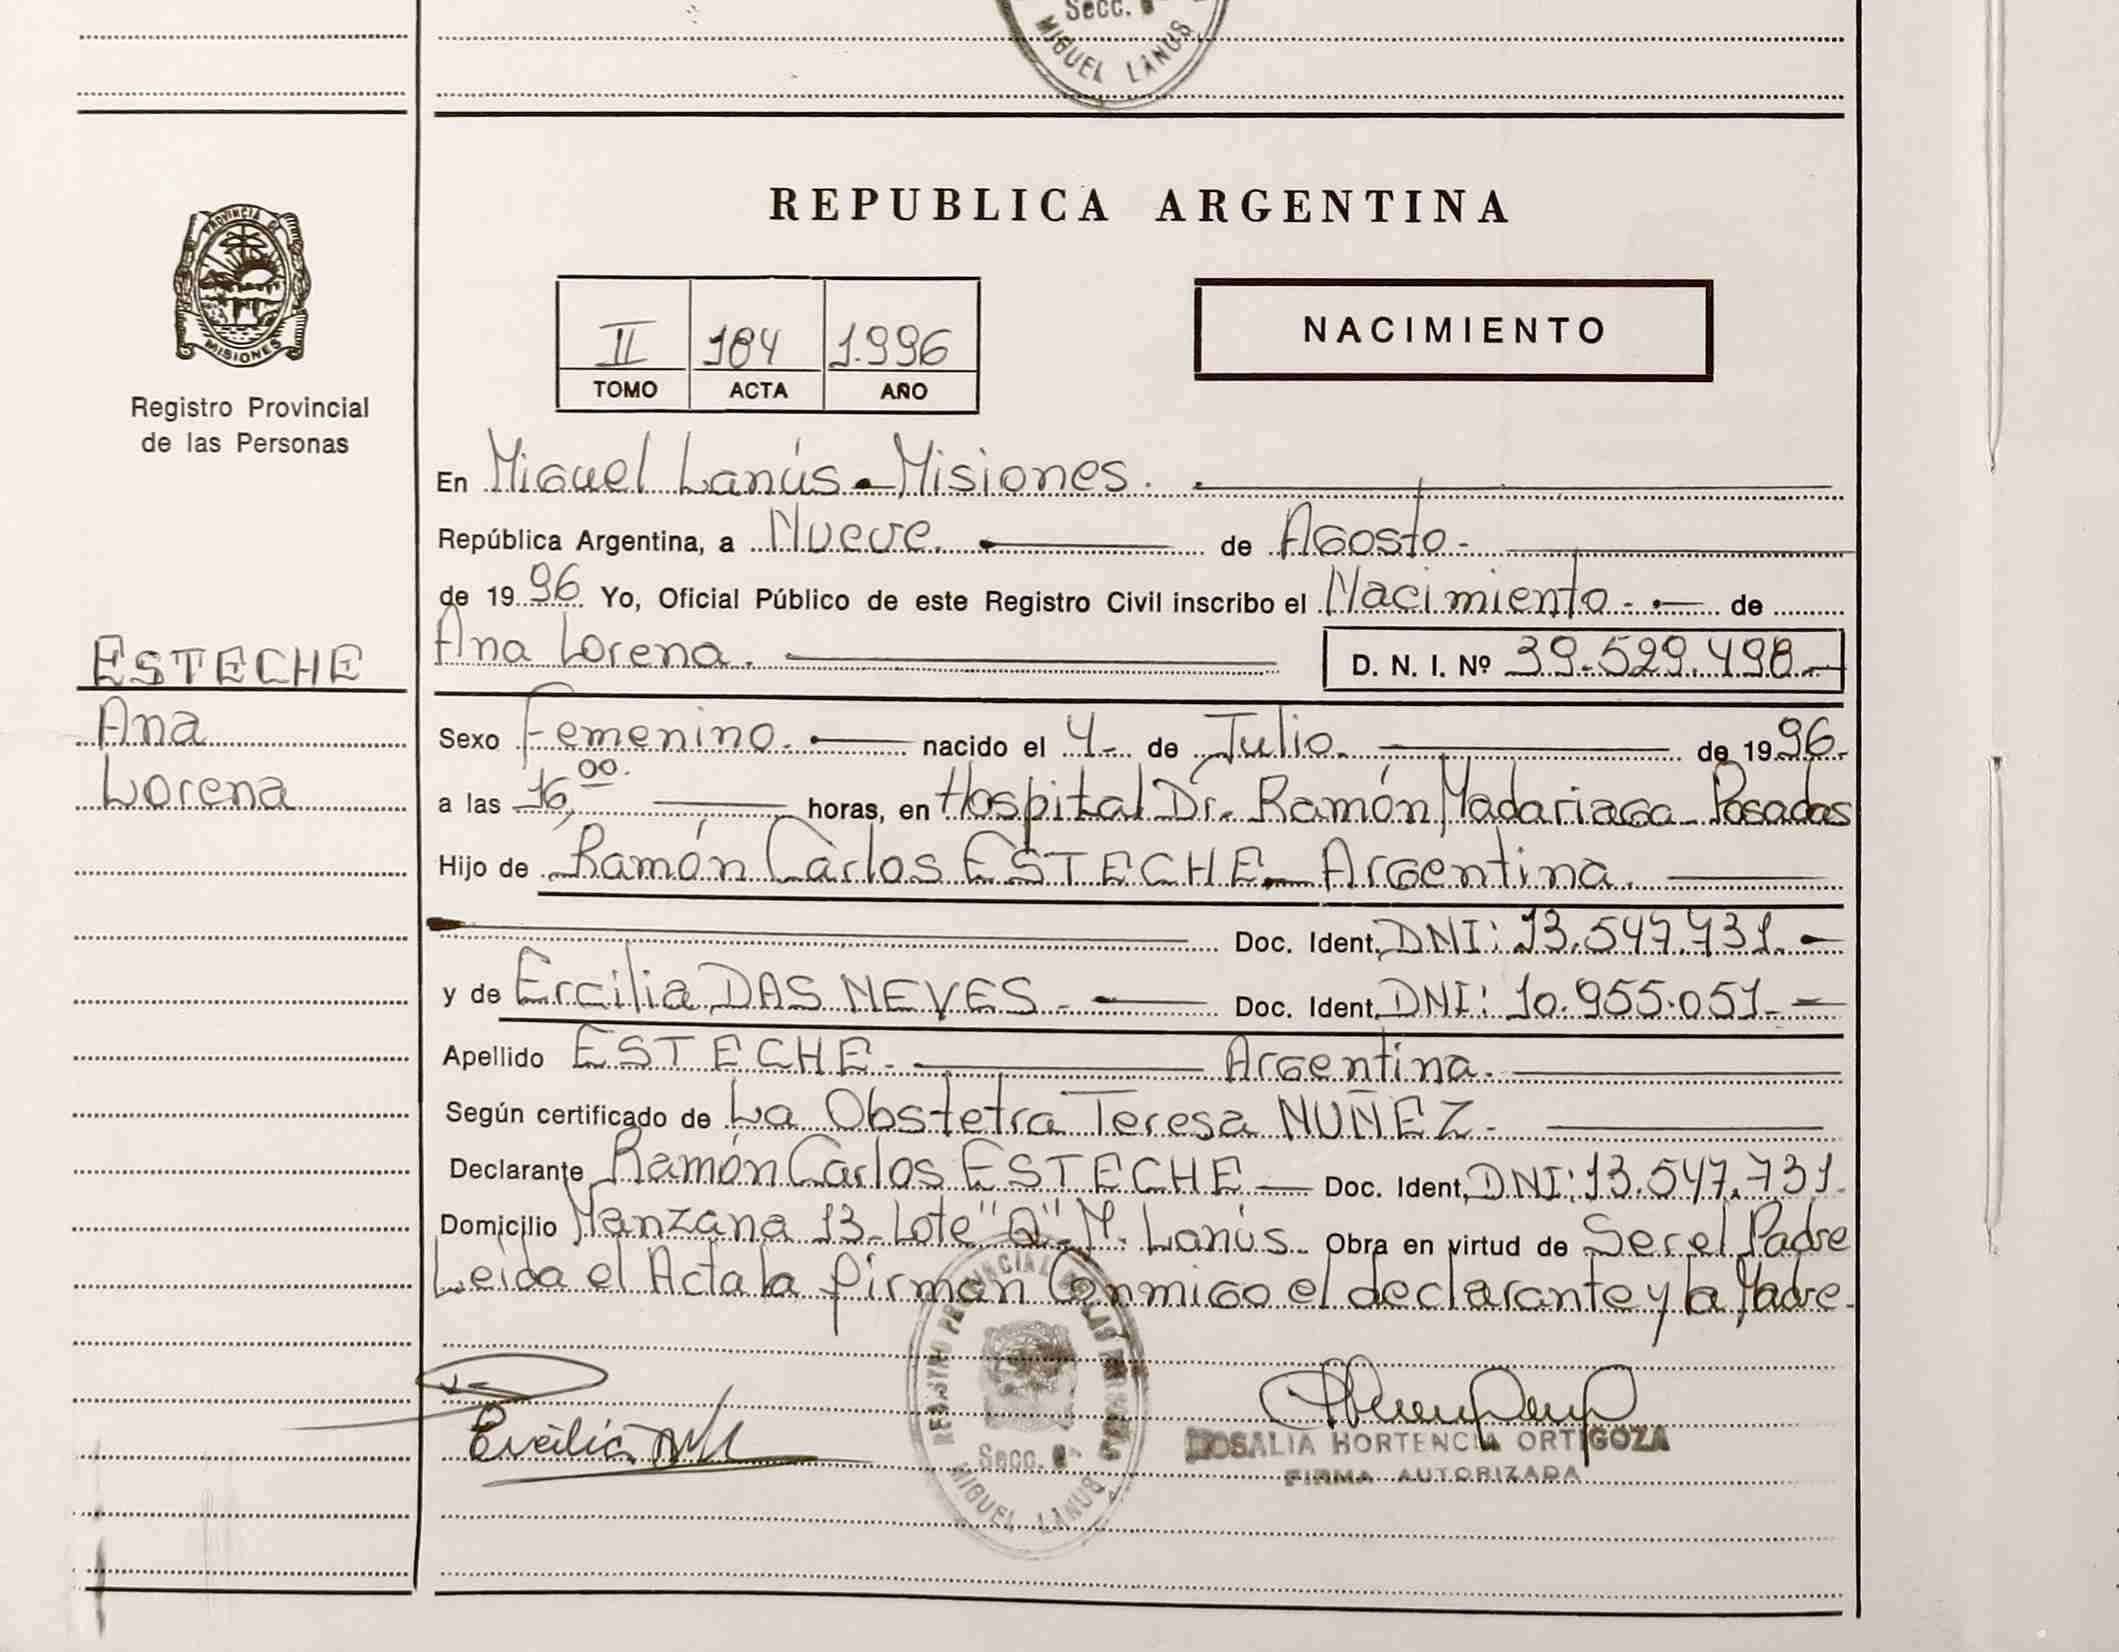 Secc. 8ª
MIGUEL LANUS
PROVINCIA D
MISIONES
Registro Provincial
de las Personas
ESTECHE
Ana
Lorena
REPUBLICA ARGENTINA
II 184 1.996
TOMO ACTA AÑO
NACIMIENTO
En Miguel Lanús - Misiones.
República Argentina, a Nueve. de Agosto.-
de 1996 Yo, Oficial Público de este Registro Civil inscribo el Nacimiento.- de
Ana Lorena. D. N. I. Nº 39.529.498.-
Sexo Femenino.- nacido el 4. de Julio. de 1996.
a las 16,00. horas, en Hospital Dr. Ramón Madariaga - Posadas
Hijo de Ramón Carlos ESTECHE - Argentina.
Doc. Ident. DNI: 13.547.731.-
y de Ercilia DAS NEVES.- Doc. Ident. DNI: 10.955.051.-
Apellido ESTECHE.- Argentina.
Según certificado de La Obstetra Teresa NUÑEZ.
Declarante Ramón Carlos ESTECHE - Doc. Ident. DNI: 13.547.731.
Domicilio Manzana 13 - Lote "Q" - M. Lanús. Obra en virtud de Ser el Padre
Leida el Acta la firman Conmigo el declarante y la Madre.
REGISTRO PROVINCIAL DE LAS PERSONAS
Secc. 8ª
MIGUEL LANUS
Ercilia
ROSALIA HORTENCIA ORTIGOZA
FIRMA AUTORIZADA